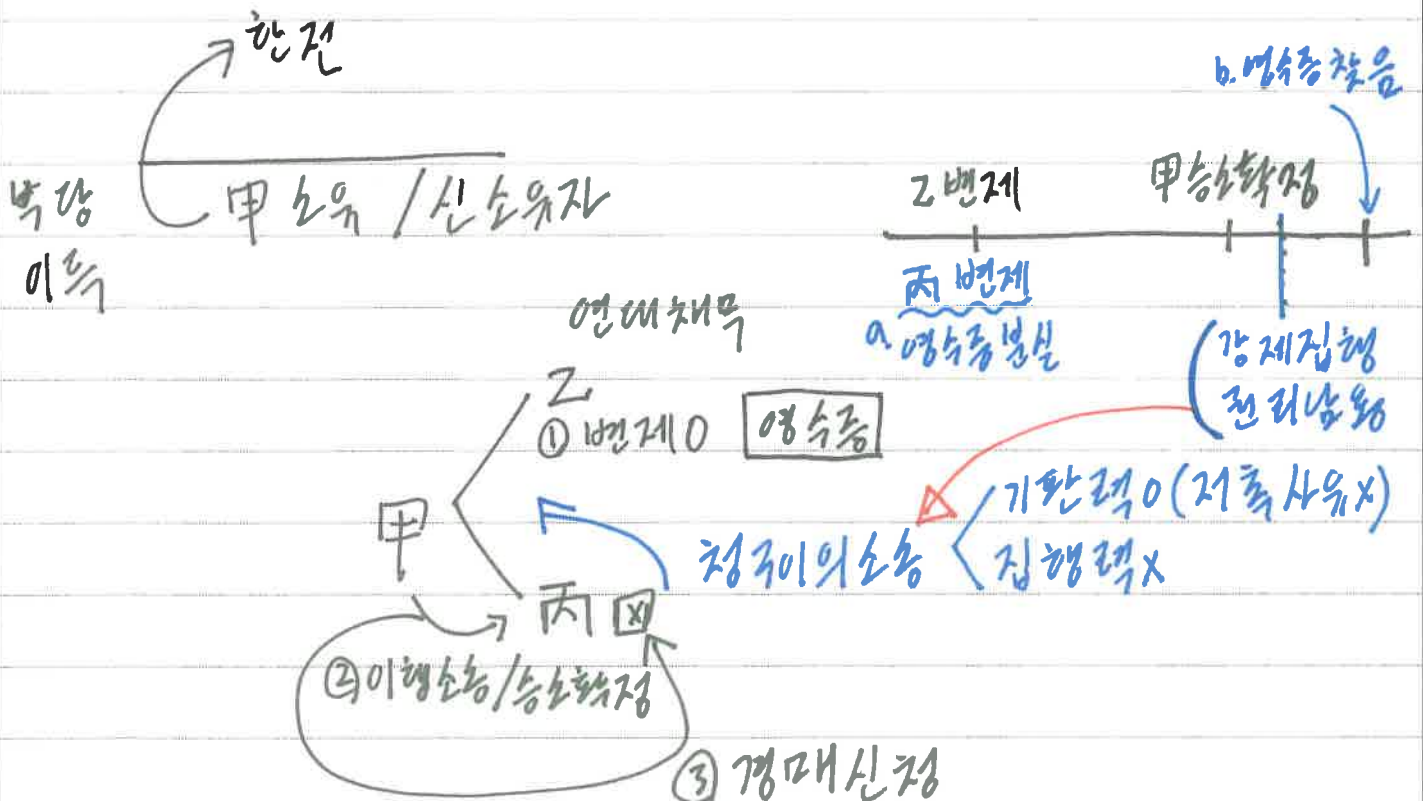 한전
부당
이득
甲 소유 / 신소유자
b. 영수증 찾음
乙 변제
甲승소확정
丙 변제
a. 영수증분실
강제집행
권리남용
연대채무
乙
① 변제 O 영수증
甲
청구이의소송
기판력 O (저촉사유X)
집행력 X
丙 X
② 이행소송/승소확정
③ 경매신청